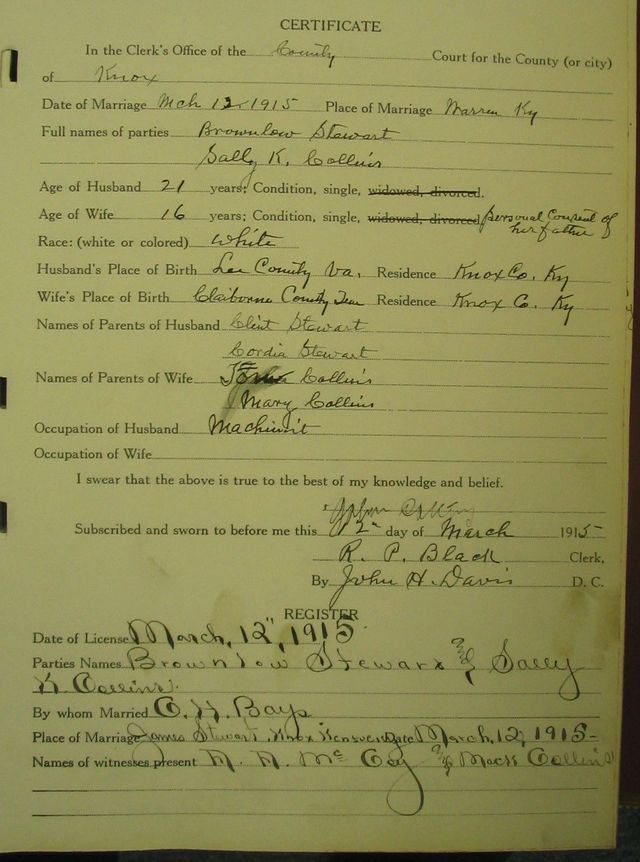 CERTIFICATE
In the Clerk's Office of the County Court for the County (or city)
of Knox
Date of Marriage Mch 12, 1915 Place of Marriage Warren Ky
Full names of parties Brownlow Stewart
Sally K. Collins
Age of Husband 21 years; Condition, single, widowed, divorced.
Age of Wife 16 years; Condition, single, widowed, divorced, personal Consent of
her father
Race: (white or colored) White
Husband's Place of Birth Lee County Va. Residence Knox Co. Ky
Wife's Place of Birth Claiborne County Tenn Residence Knox Co. Ky
Names of Parents of Husband Clint Stewart
Cordia Stewart
Names of Parents of Wife Collins
Mary Collins
Occupation of Husband Machinist
Occupation of Wife
I swear that the above is true to the best of my knowledge and belief.
John Collins
Subscribed and sworn to before me this 12" day of March 1915
R. P. Black Clerk,
By John H. Davis D. C.
REGISTER
Date of License March, 12", 1915
Parties Names Brownlow Stewart and Sally
K Collins.
By whom Married Bays
Place of Marriage James Stewart, Knox Date March, 12, 1915-
Names of witnesses present Mc Coy and Mack Collins